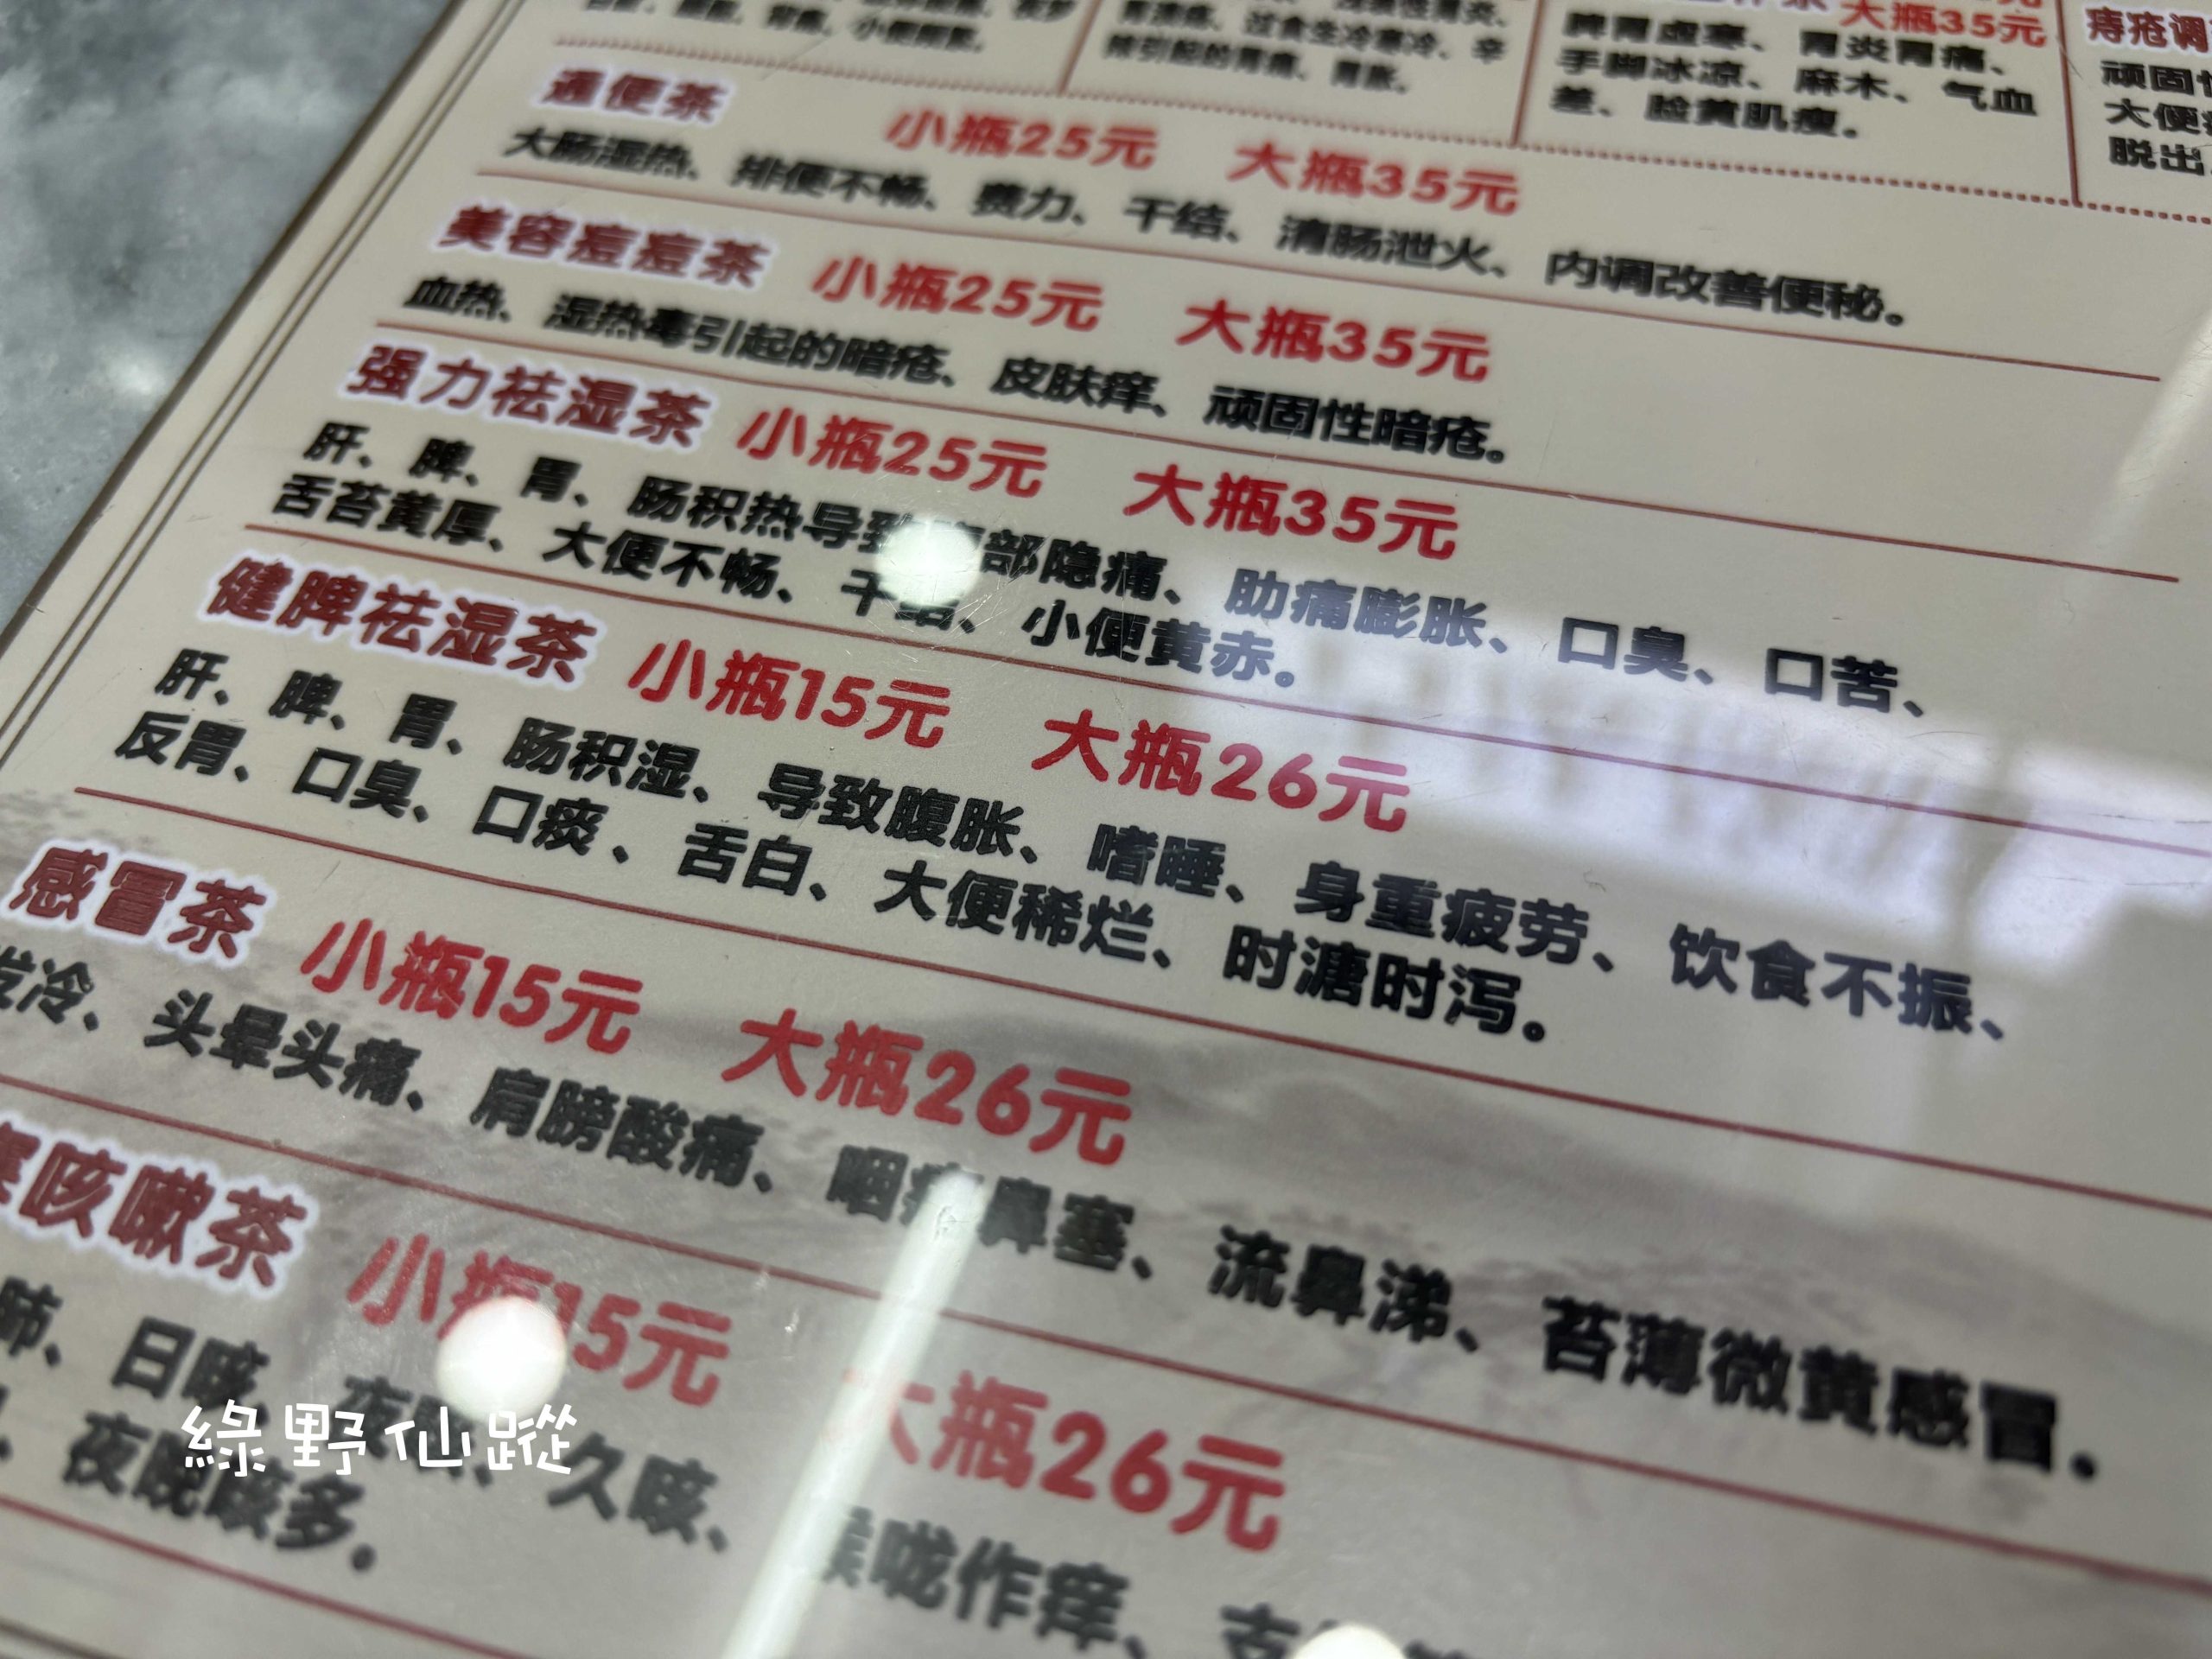 大瓶35元
脾胃虚寒、胃炎胃痛、
手脚冰凉、麻木、气血
差、脸黄肌瘦。
痔疮调
大便
脱出
过食生冷寒冷、辛
辣引起的胃痛、胃胀。
通便茶 小瓶25元 大瓶35元
大肠湿热、排便不畅、费力、干结、清肠泄火、内调改善便秘。
美容痘痘茶 小瓶25元 大瓶35元
血热、湿热毒引起的暗疮、皮肤痒、顽固性暗疮。
强力祛湿茶 小瓶25元 大瓶35元
肝、脾、胃、肠积热导致部隐痛、肋痛膨胀、口臭、口苦、
舌苔黄厚、大便不畅、干结、小便黄赤。
健脾祛湿茶 小瓶15元 大瓶26元
肝、脾、胃、肠积湿、导致腹胀、嗜睡、身重疲劳、饮食不振、
反胃、口臭、口痰、舌白、大便稀烂、时溏时泻。
感冒茶 小瓶15元 大瓶26元
发冷、头晕头痛、肩膀酸痛、咽鼻塞、流鼻涕、苔薄微黄感冒.
咳嗽茶 小瓶15元 大瓶26元
肺、日咳、夜咳、久咳、喉咙作痒、支
夜晚咳多。
綠野仙蹤